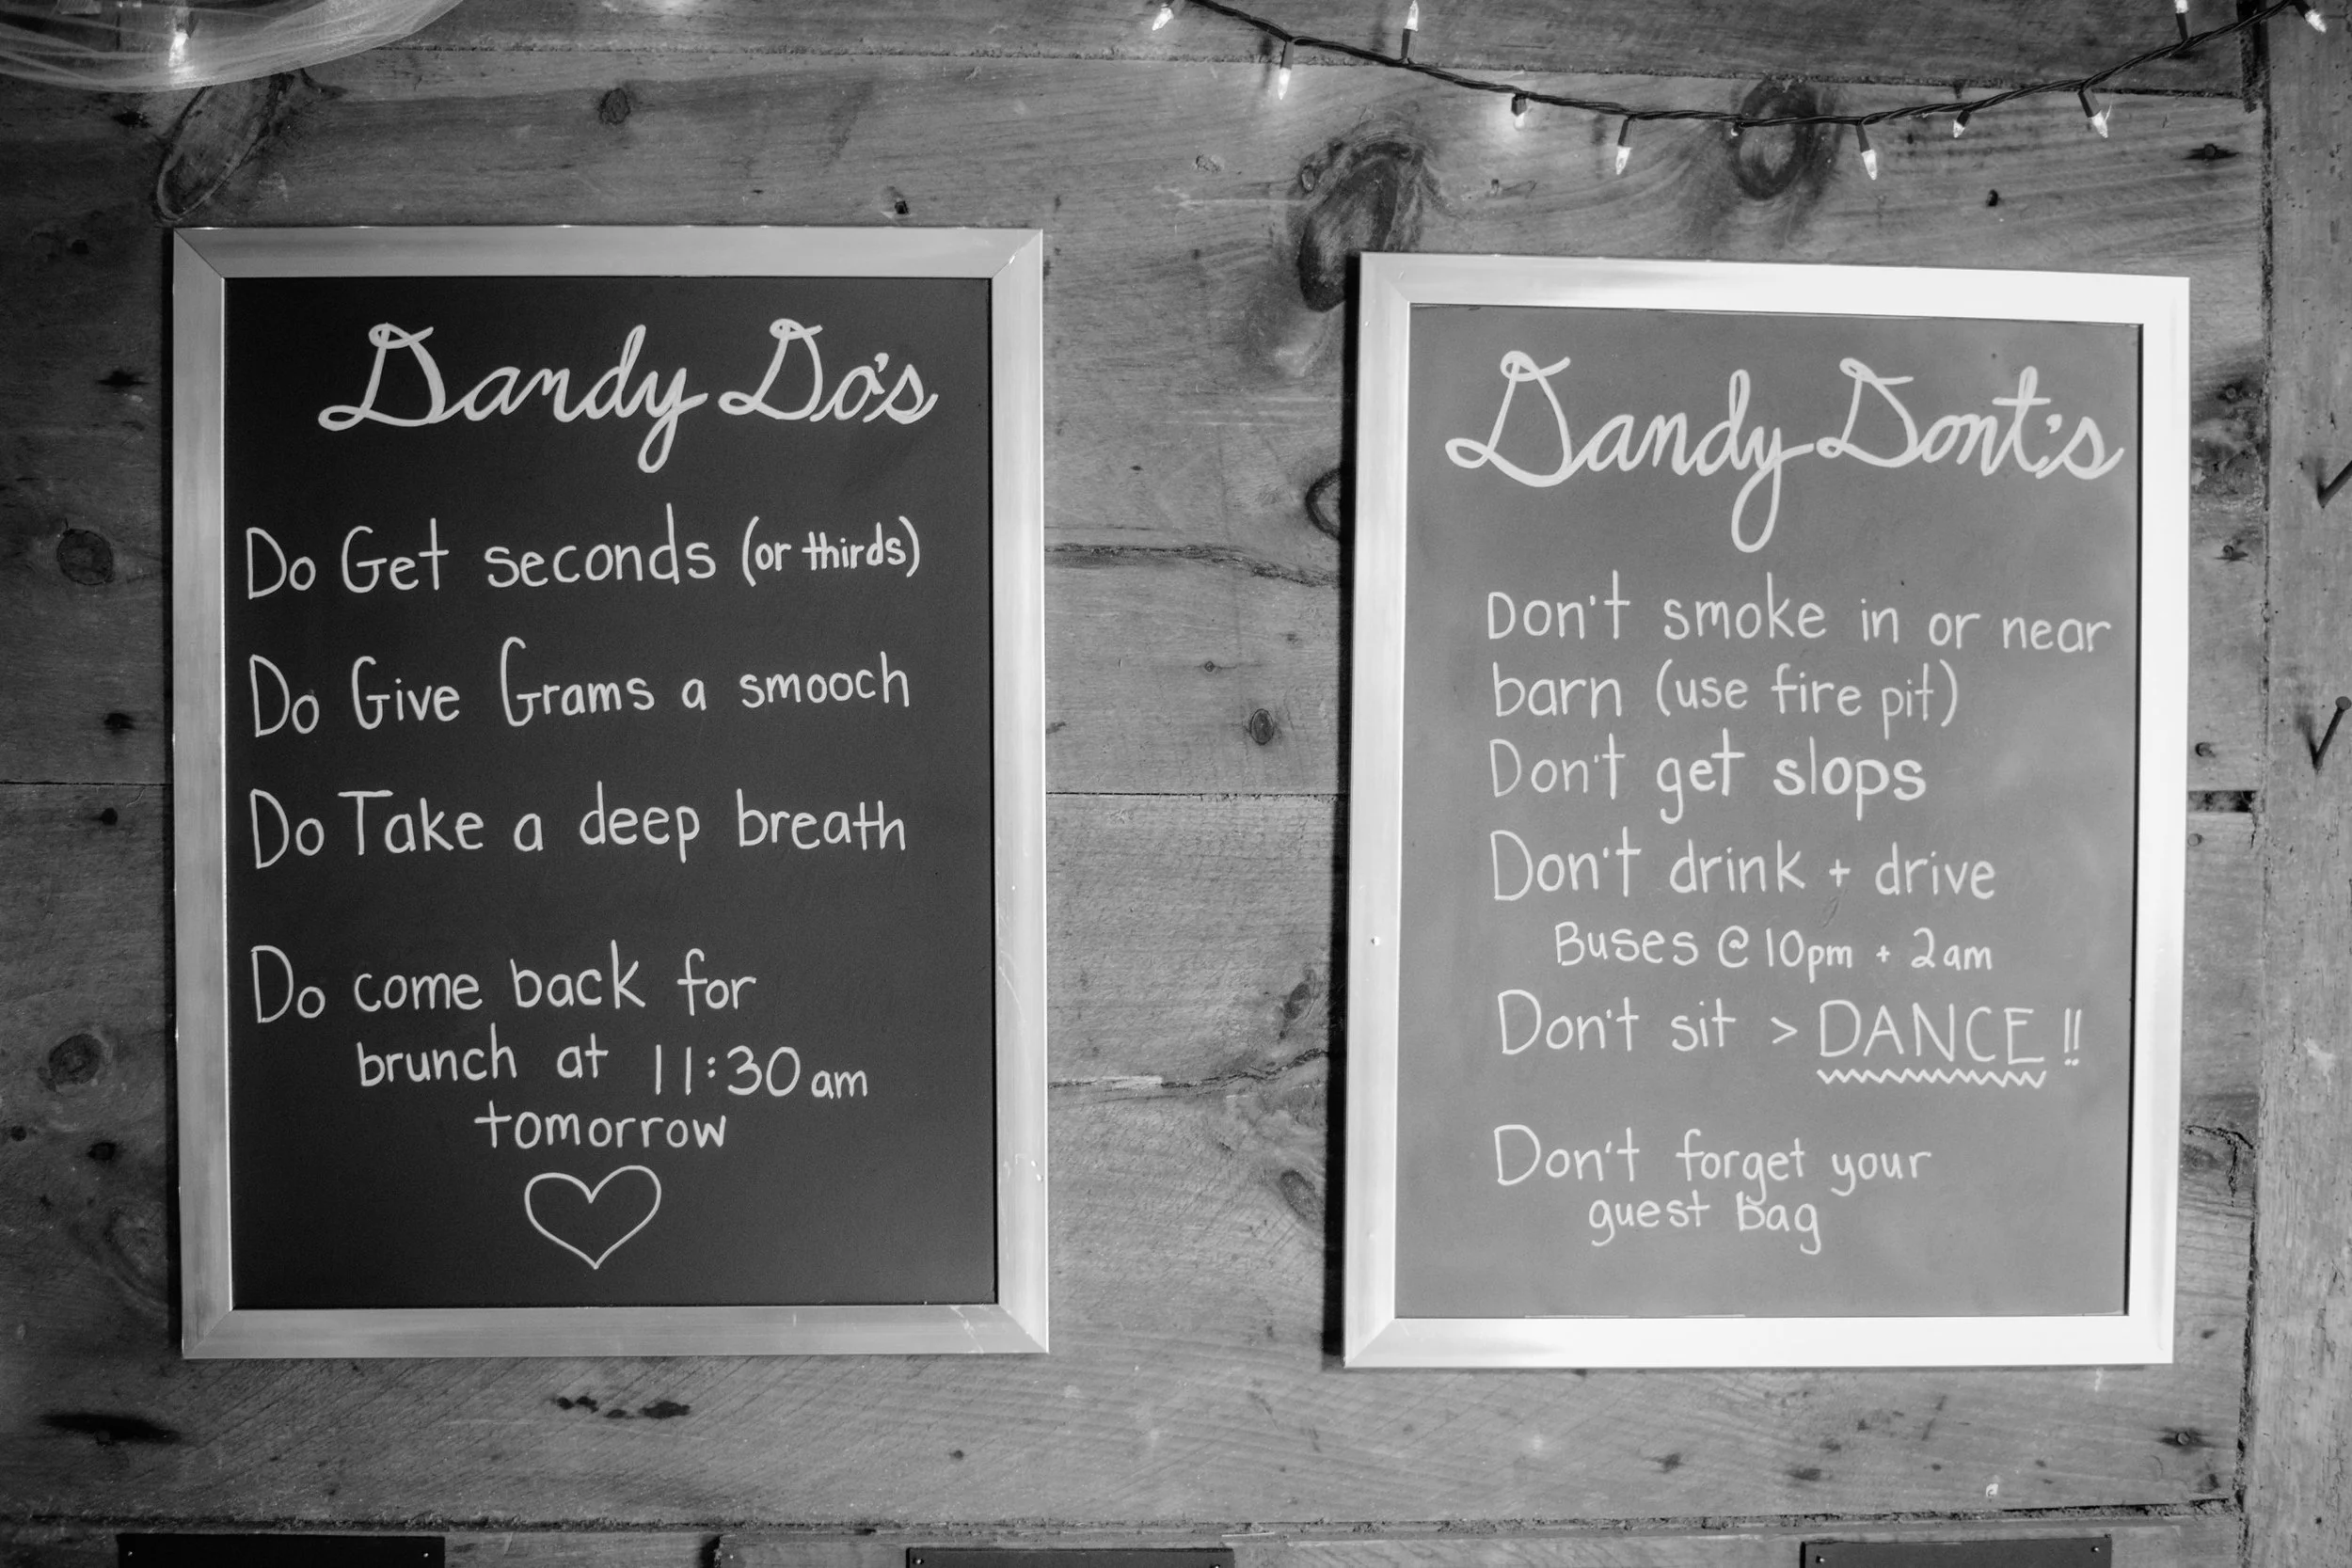 Dandy Do's
Do Get seconds (or thirds)
Do Give Grams a smooch
Do Take a deep breath
Do come back for
brunch at 11:30am
tomorrow
Dandy Dont's
Don't smoke in or near
barn (use fire pit)
Don't get slops
Don't drink + drive
Buses @ 10pm + 2am
Don't sit > DANCE!!
Don't forget your
guest bag